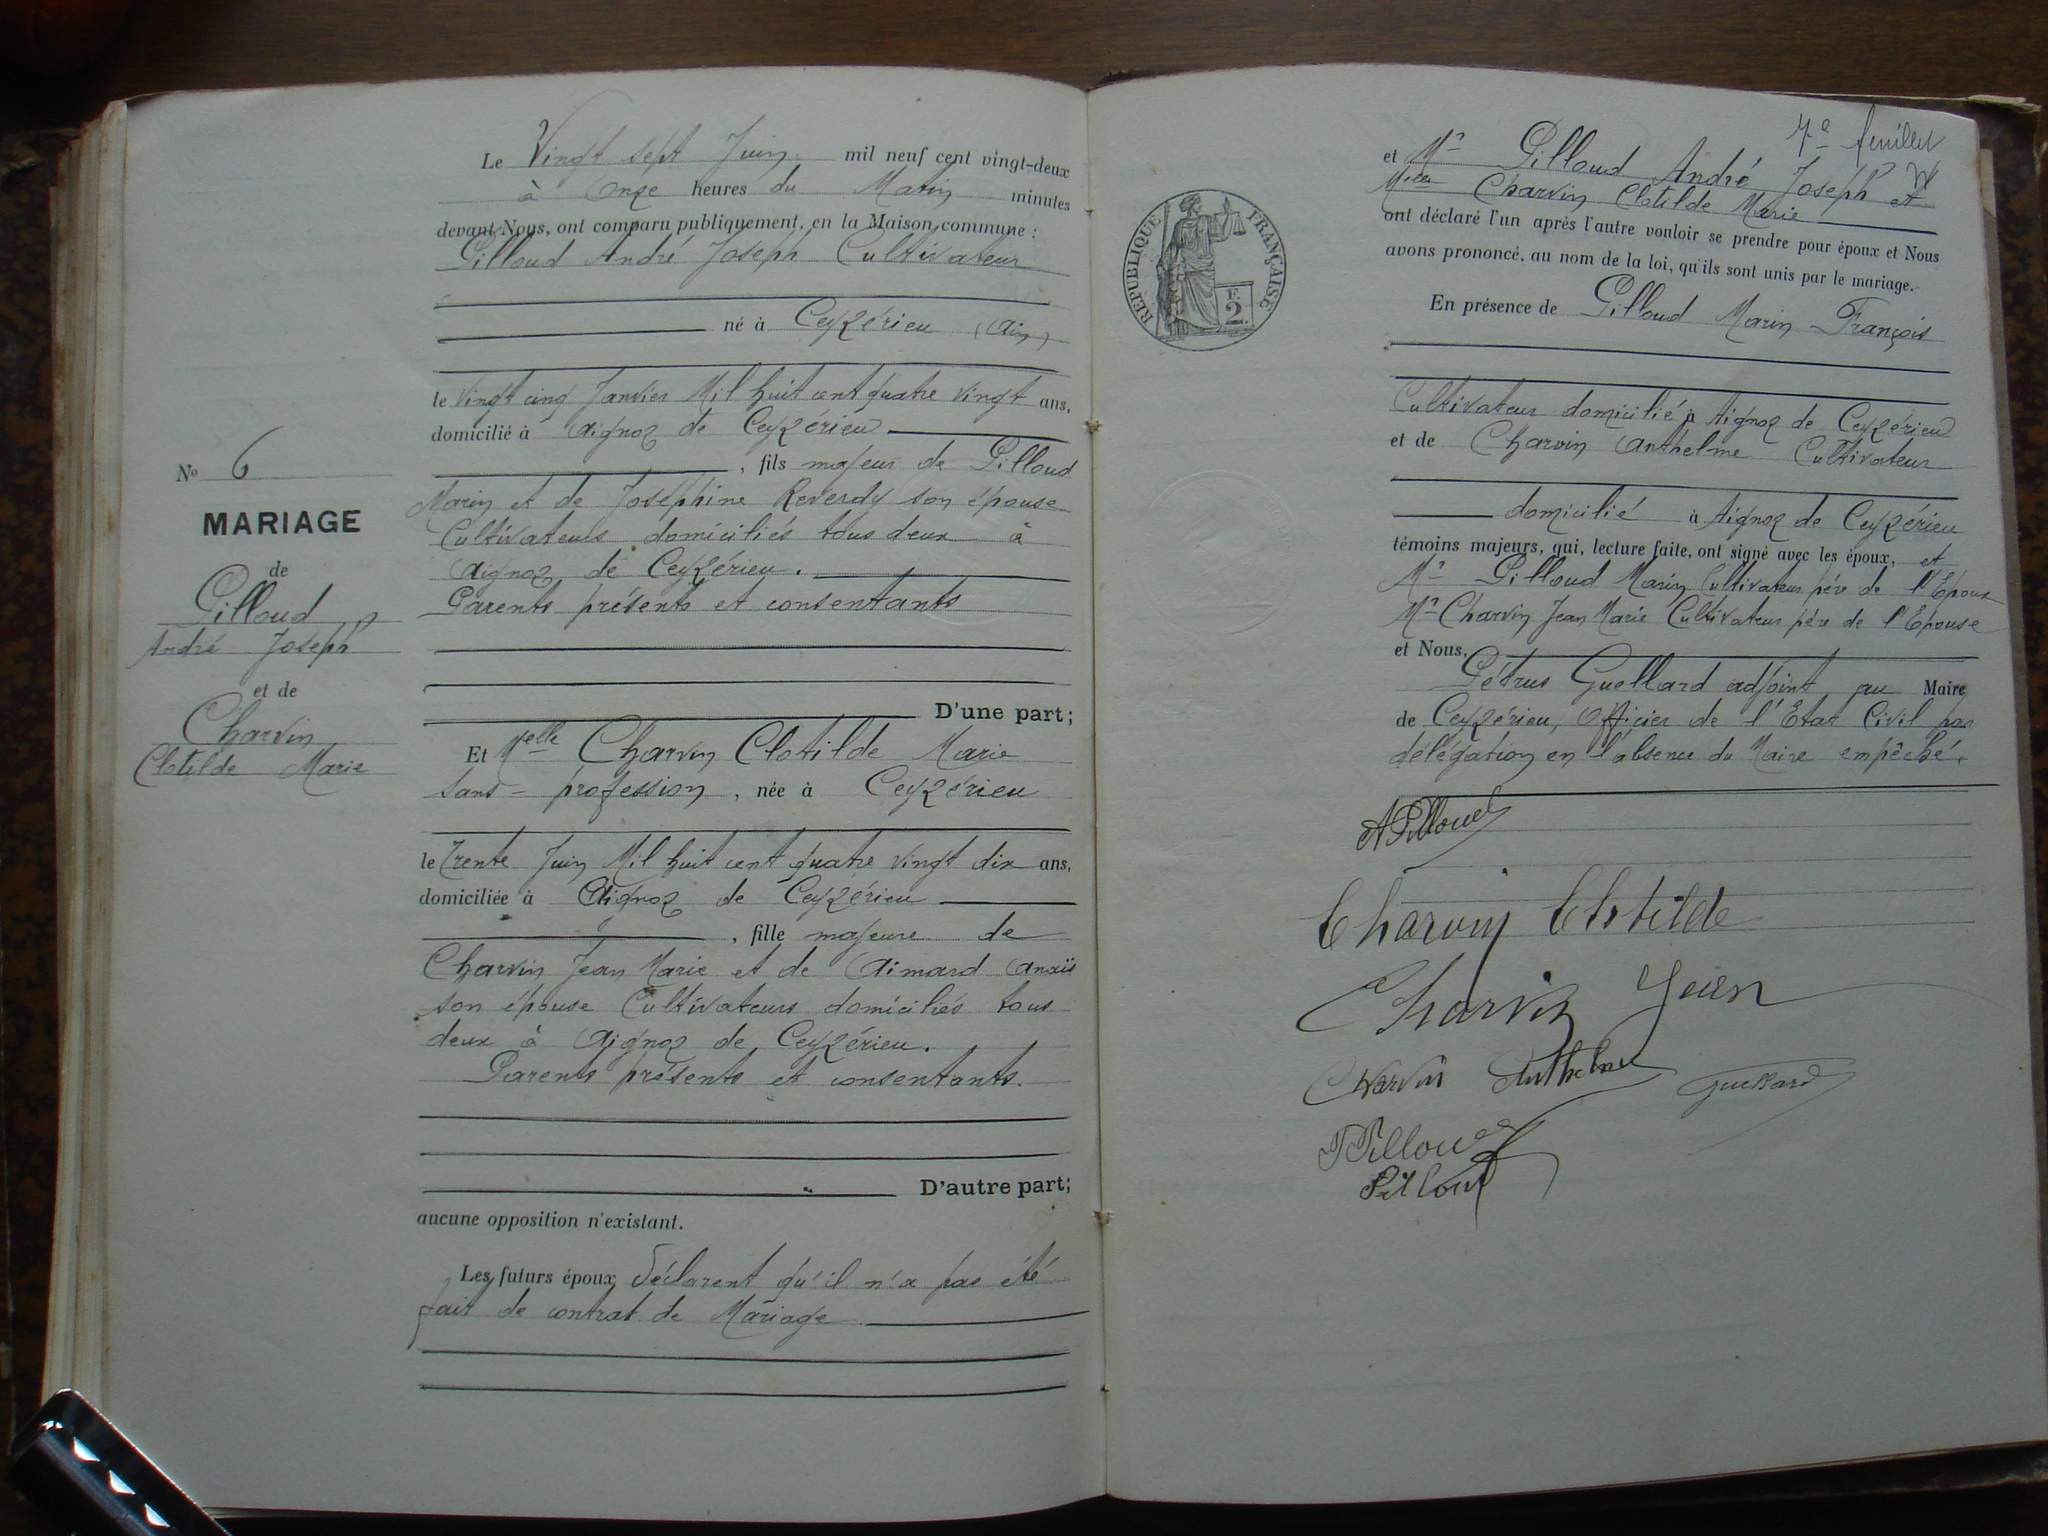 Le Vingt sept Juin mil neuf cent vingt-deux
à Onze heures du Matin minutes
devant Nous, ont comparu publiquement, en la Maison commune :
Pilloud André Joseph Cultivateur
né à Ceyzérieu (Ain)
le Vingt cinq Janvier Mil huit cent quatre vingt ans,
domicilié à Aignoz de Ceyzérieu
, fils majeur de Pilloud
Marin et de Joséphine Reverdy son épouse
Cultivateurs domiciliés tous deux à
Aignoz de Ceyzérieu.
Parents présents et consentants
D'une part;
No 6
MARIAGE
de
Pilloud
André Joseph
et de
Charvin
Clotilde Marie
Et Melle Charvin Clotilde Marie
sans - profession, née à Ceyzérieu
le Trente Juin Mil huit cent quatre vingt dix ans,
domiciliée à Aignoz de Ceyzérieu
, fille majeure de
Charvin Jean Marie et de Aimard Anaïs
son épouse Cultivateurs domiciliés tous
deux à Aignoz de Ceyzérieu.
Parents présents et consentants.
D'autre part;
aucune opposition n'existant.
Les futurs époux déclarent qu'il n'a pas été
fait de contrat de Mariage.
7e feuillet
et Mr Pilloud André Joseph et
Melle Charvin Clotilde Marie
ont déclaré l'un après l'autre vouloir se prendre pour époux et Nous
avons prononcé, au nom de la loi, qu'ils sont unis par le mariage.
RÉPUBLIQUE FRANÇAISE
F.
2.
En présence de Pilloud Marin François
Cultivateur domicilié à Aignoz de Ceyzérieu
et de Charvin Anthelme Cultivateur
domicilié à Aignoz de Ceyzérieu
témoins majeurs, qui, lecture faite, ont signé avec les époux, et
Mr Pilloud Marin Cultivateur père de l'Époux
Mr Charvin Jean Marie Cultivateur père de l'Épouse
et Nous,
Pétrus Guellard adjoint au Maire
de Ceyzérieu, Officier de l'État Civil par
délégation en l'absence du Maire empêché.
A Pilloud
Charvin Clotilde
Charvin Jean
Charvin Anthelme Guellard
Pilloud
Pilloud